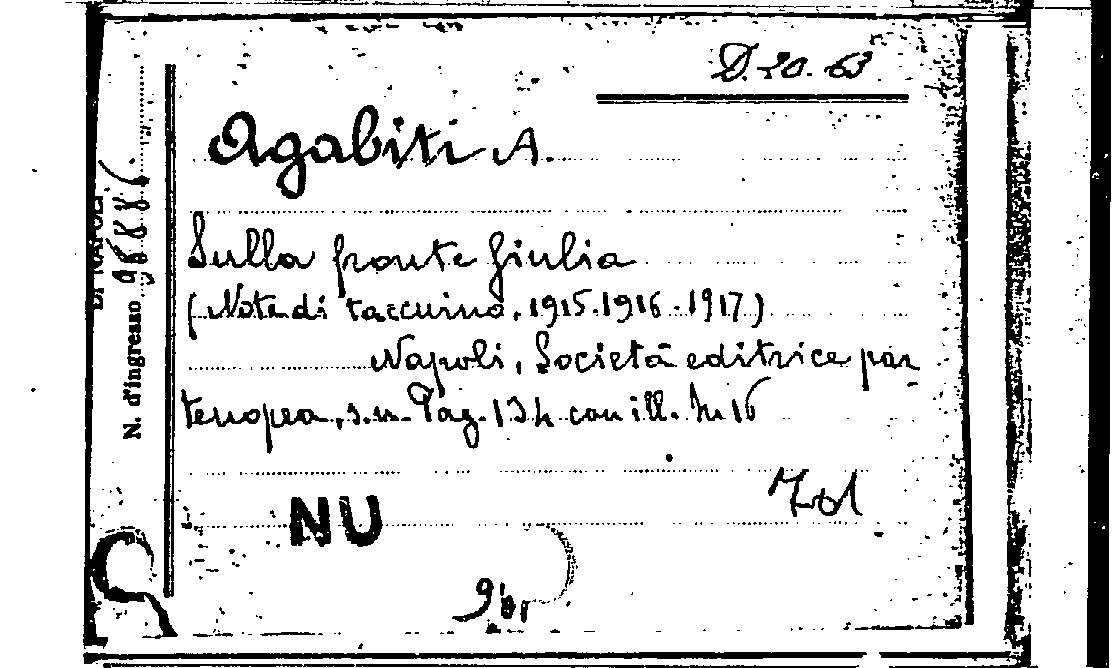 D. 20. 63
Agabiti A.
Sulla fronte Giulia
(Note di taccuino, 1915-1916-1917)
Napoli, Società editrice par-
tenopea, s.n. Pag. 134 con ill. In 16
NU
DI NAPOLI
N. d'ingresso